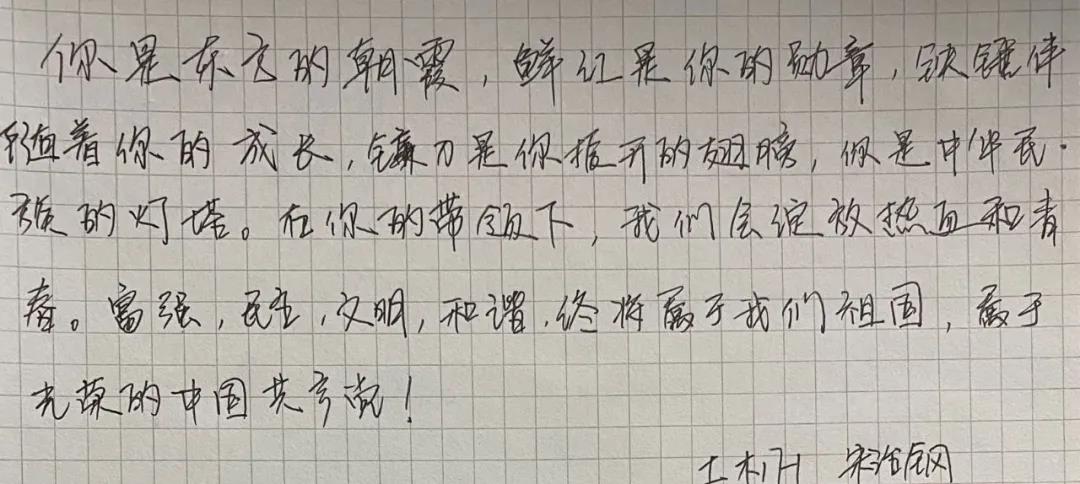 你是东方的朝霞，鲜红是你的勋章，铁锤伴
随着你的成长，镰刀是你振开的翅膀，你是中华民
族的灯塔。在你的带领下，我们会绽放热血和青
春。富强，民主，文明，和谐，终将属于我们祖国，属于
光荣的中国共产党！
土木H 宋治钢